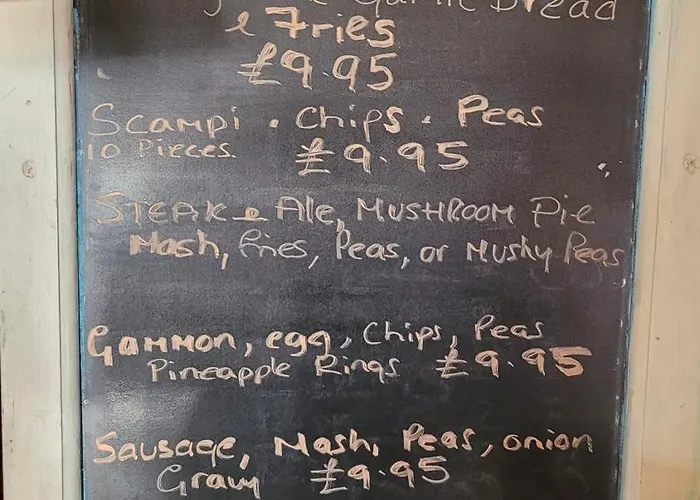 Bread
& Fries
£9.95
Scampi . Chips . Peas
10 Pieces. £9.95
STEAK & Ale, MUSHROOM Pie
Mash, fries, Peas, or Mushy Peas
Gammon, egg, Chips, Peas
Pineapple Rings £9.95
Sausage, Mash, Peas, onion
Gravy £9.95